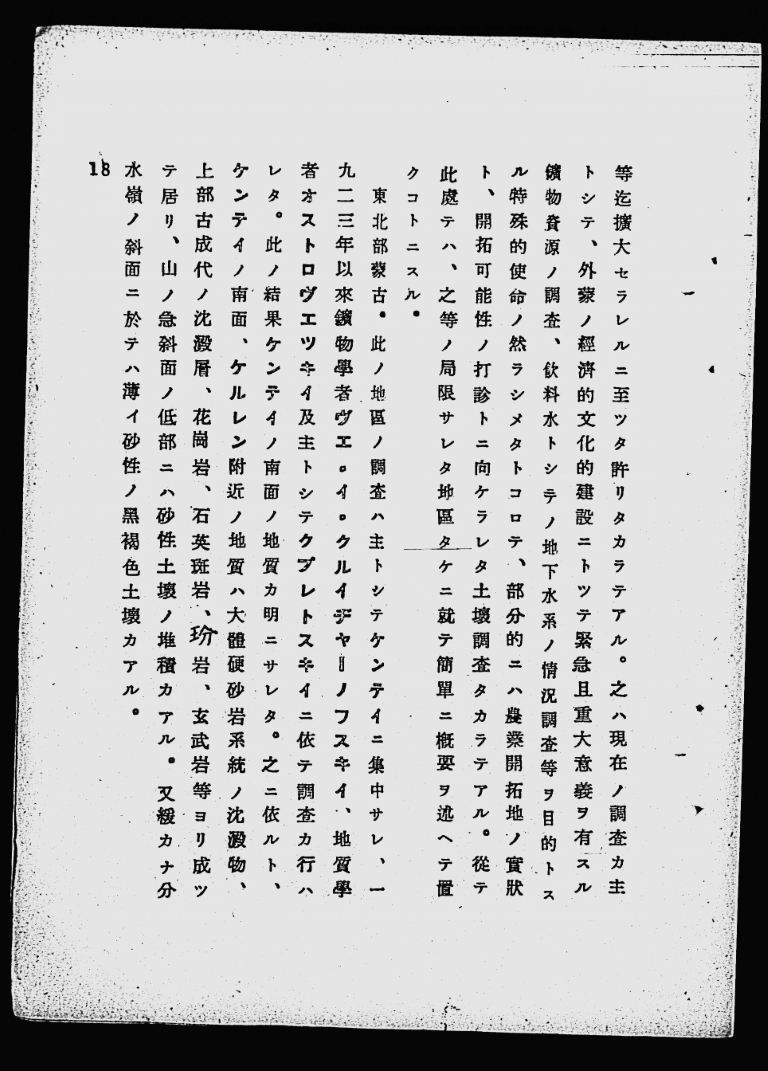 等迄擴大セラレルニ至ツタ許リタカラテアル。之ハ現在ノ調査カ主
トシテ、外蒙ノ經濟的文化的建設ニトツテ緊急且重大意義ヲ有スル
鑛物資源ノ調査、飮料水トシテノ地下水系ノ情況調査等ヲ目的トス
ル特殊的使命ノ然ラシメタトコロテ、部分的ニハ農業開拓地ノ實狀
ト、開拓可能性ノ打診トニ向ケラレタ土壤調査タカラテアル。從テ
此處テハ、之等ノ局限サレタ地區タケニ就テ簡單ニ槪要ヲ述ヘテ置
クコトニスル。
東北部蒙古。此ノ地區ノ調査ハ主トシテケンテイニ集中サレ、一
九二三年以來鑛物學者ヴエ。イ。クルイヂヤーノフスキイ、地質學
者オストロヴエツキイ及主トシテクプレトスキイニ依テ調査カ行ハ
レタ。此ノ結果ケンテイノ南面ノ地質カ明ニサレタ。之ニ依ルト、
ケンテイノ南面、ケルレン附近ノ地質ハ大體硬砂岩系統ノ沈澱物、
上部古成代ノ沈澱層、花崗岩、石英斑岩、玢岩、玄武岩等ヨリ成ツ
テ居リ、山ノ急斜面ノ低部ニハ砂性土壤ノ堆積カアル。又緩カナ分
水嶺ノ斜面ニ於テハ薄イ砂性ノ黑褐色土壤カアル。
18